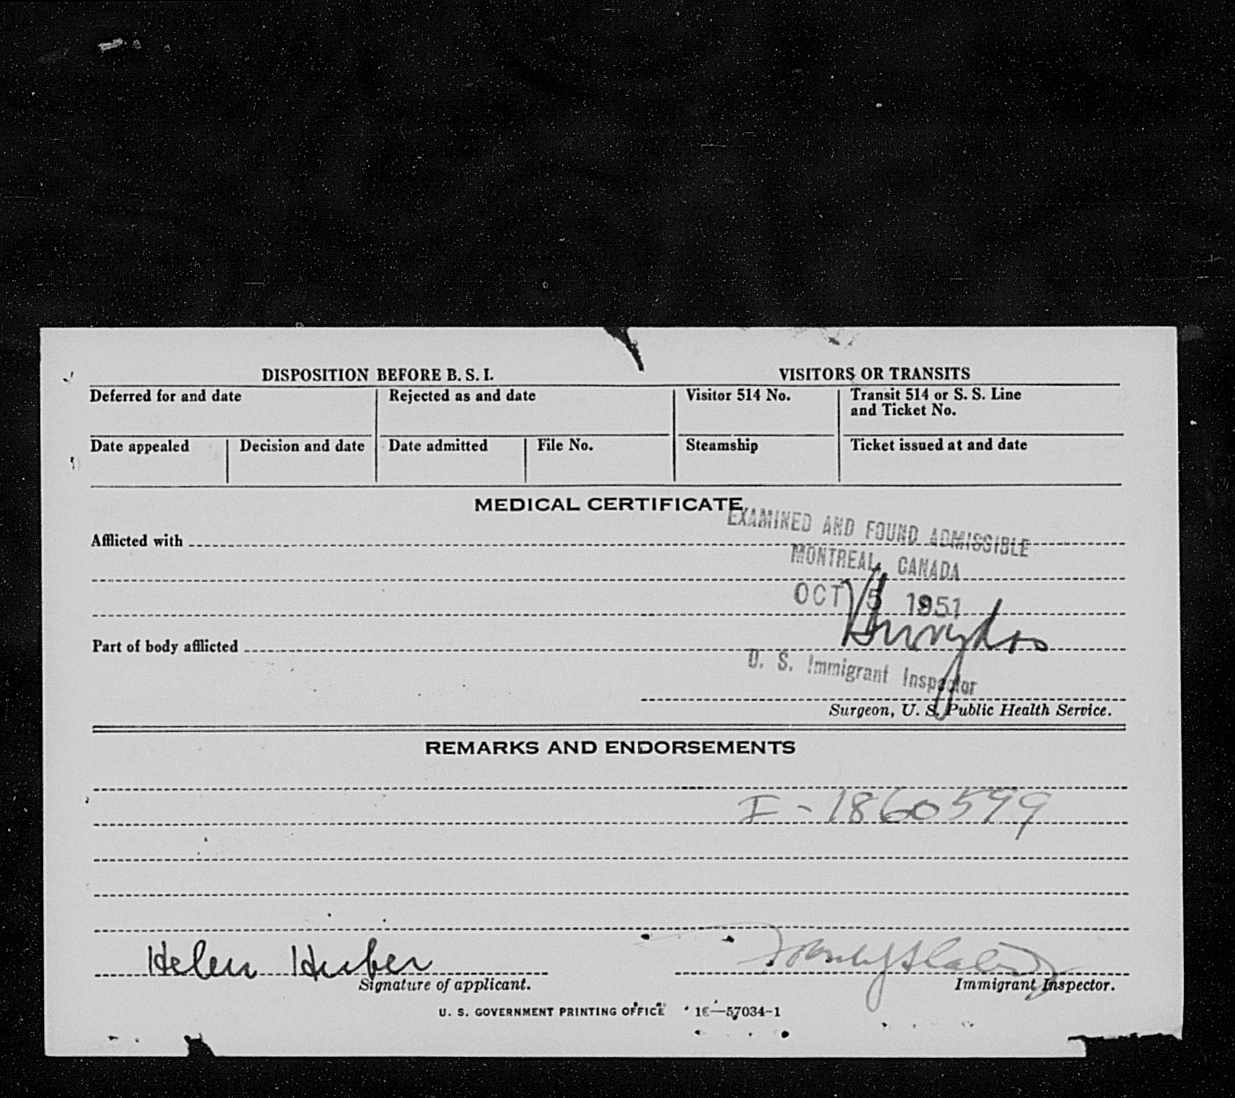 DISPOSITION BEFORE B. S. I.
VISITORS OR TRANSITS
Deferred for and date
Rejected as and date
Visitor 514 No.
Transit 514 or S. S. Line
and Ticket No.
Date appealed
Decision and date
Date admitted
File No.
Steamship
Ticket issued at and date
MEDICAL CERTIFICATE
EXAMINED AND FOUND ADMISSIBLE
Afflicted with
MONTREAL, CANADA
OCT 5 1951
Part of body afflicted
U. S. Immigrant Inspector
Surgeon, U. S. Public Health Service.
REMARKS AND ENDORSEMENTS
I-1860599
Helen Huber
Signature of applicant.
Immigrant Inspector.
U. S. GOVERNMENT PRINTING OFFICE 16—57034-1